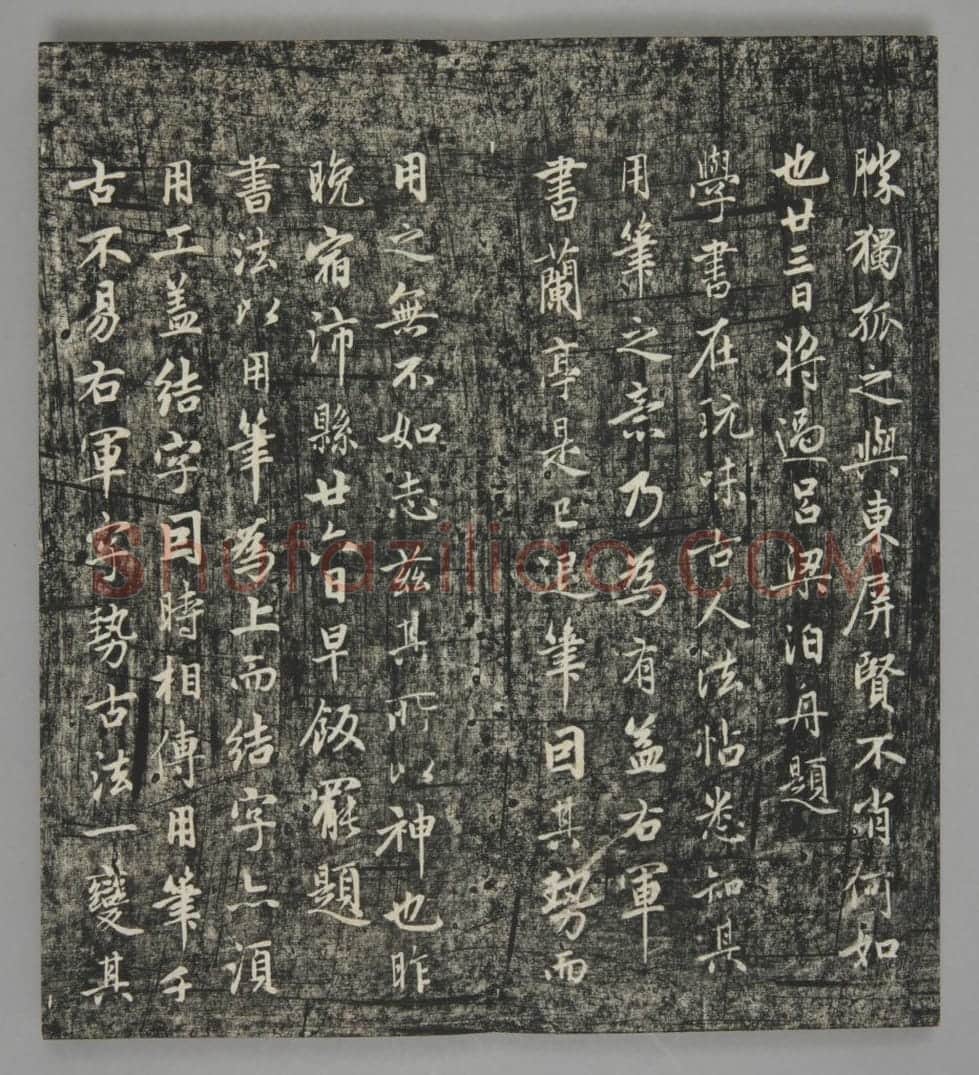 勝獨孤之與東屏賢不肖何如
也廿三日將過呂梁泊舟題
學書在玩味古人法帖悉知其
用筆之意乃為有益右軍
書蘭亭是已退筆因其勢而
用之無不如志茲其所以神也昨
晚宿沛縣廿六日早飯罷題
書法以用筆為上而結字亦須
用工盖結字因時相傳用筆千
古不易右軍字勢古法一變其
Shufaziliao.COM